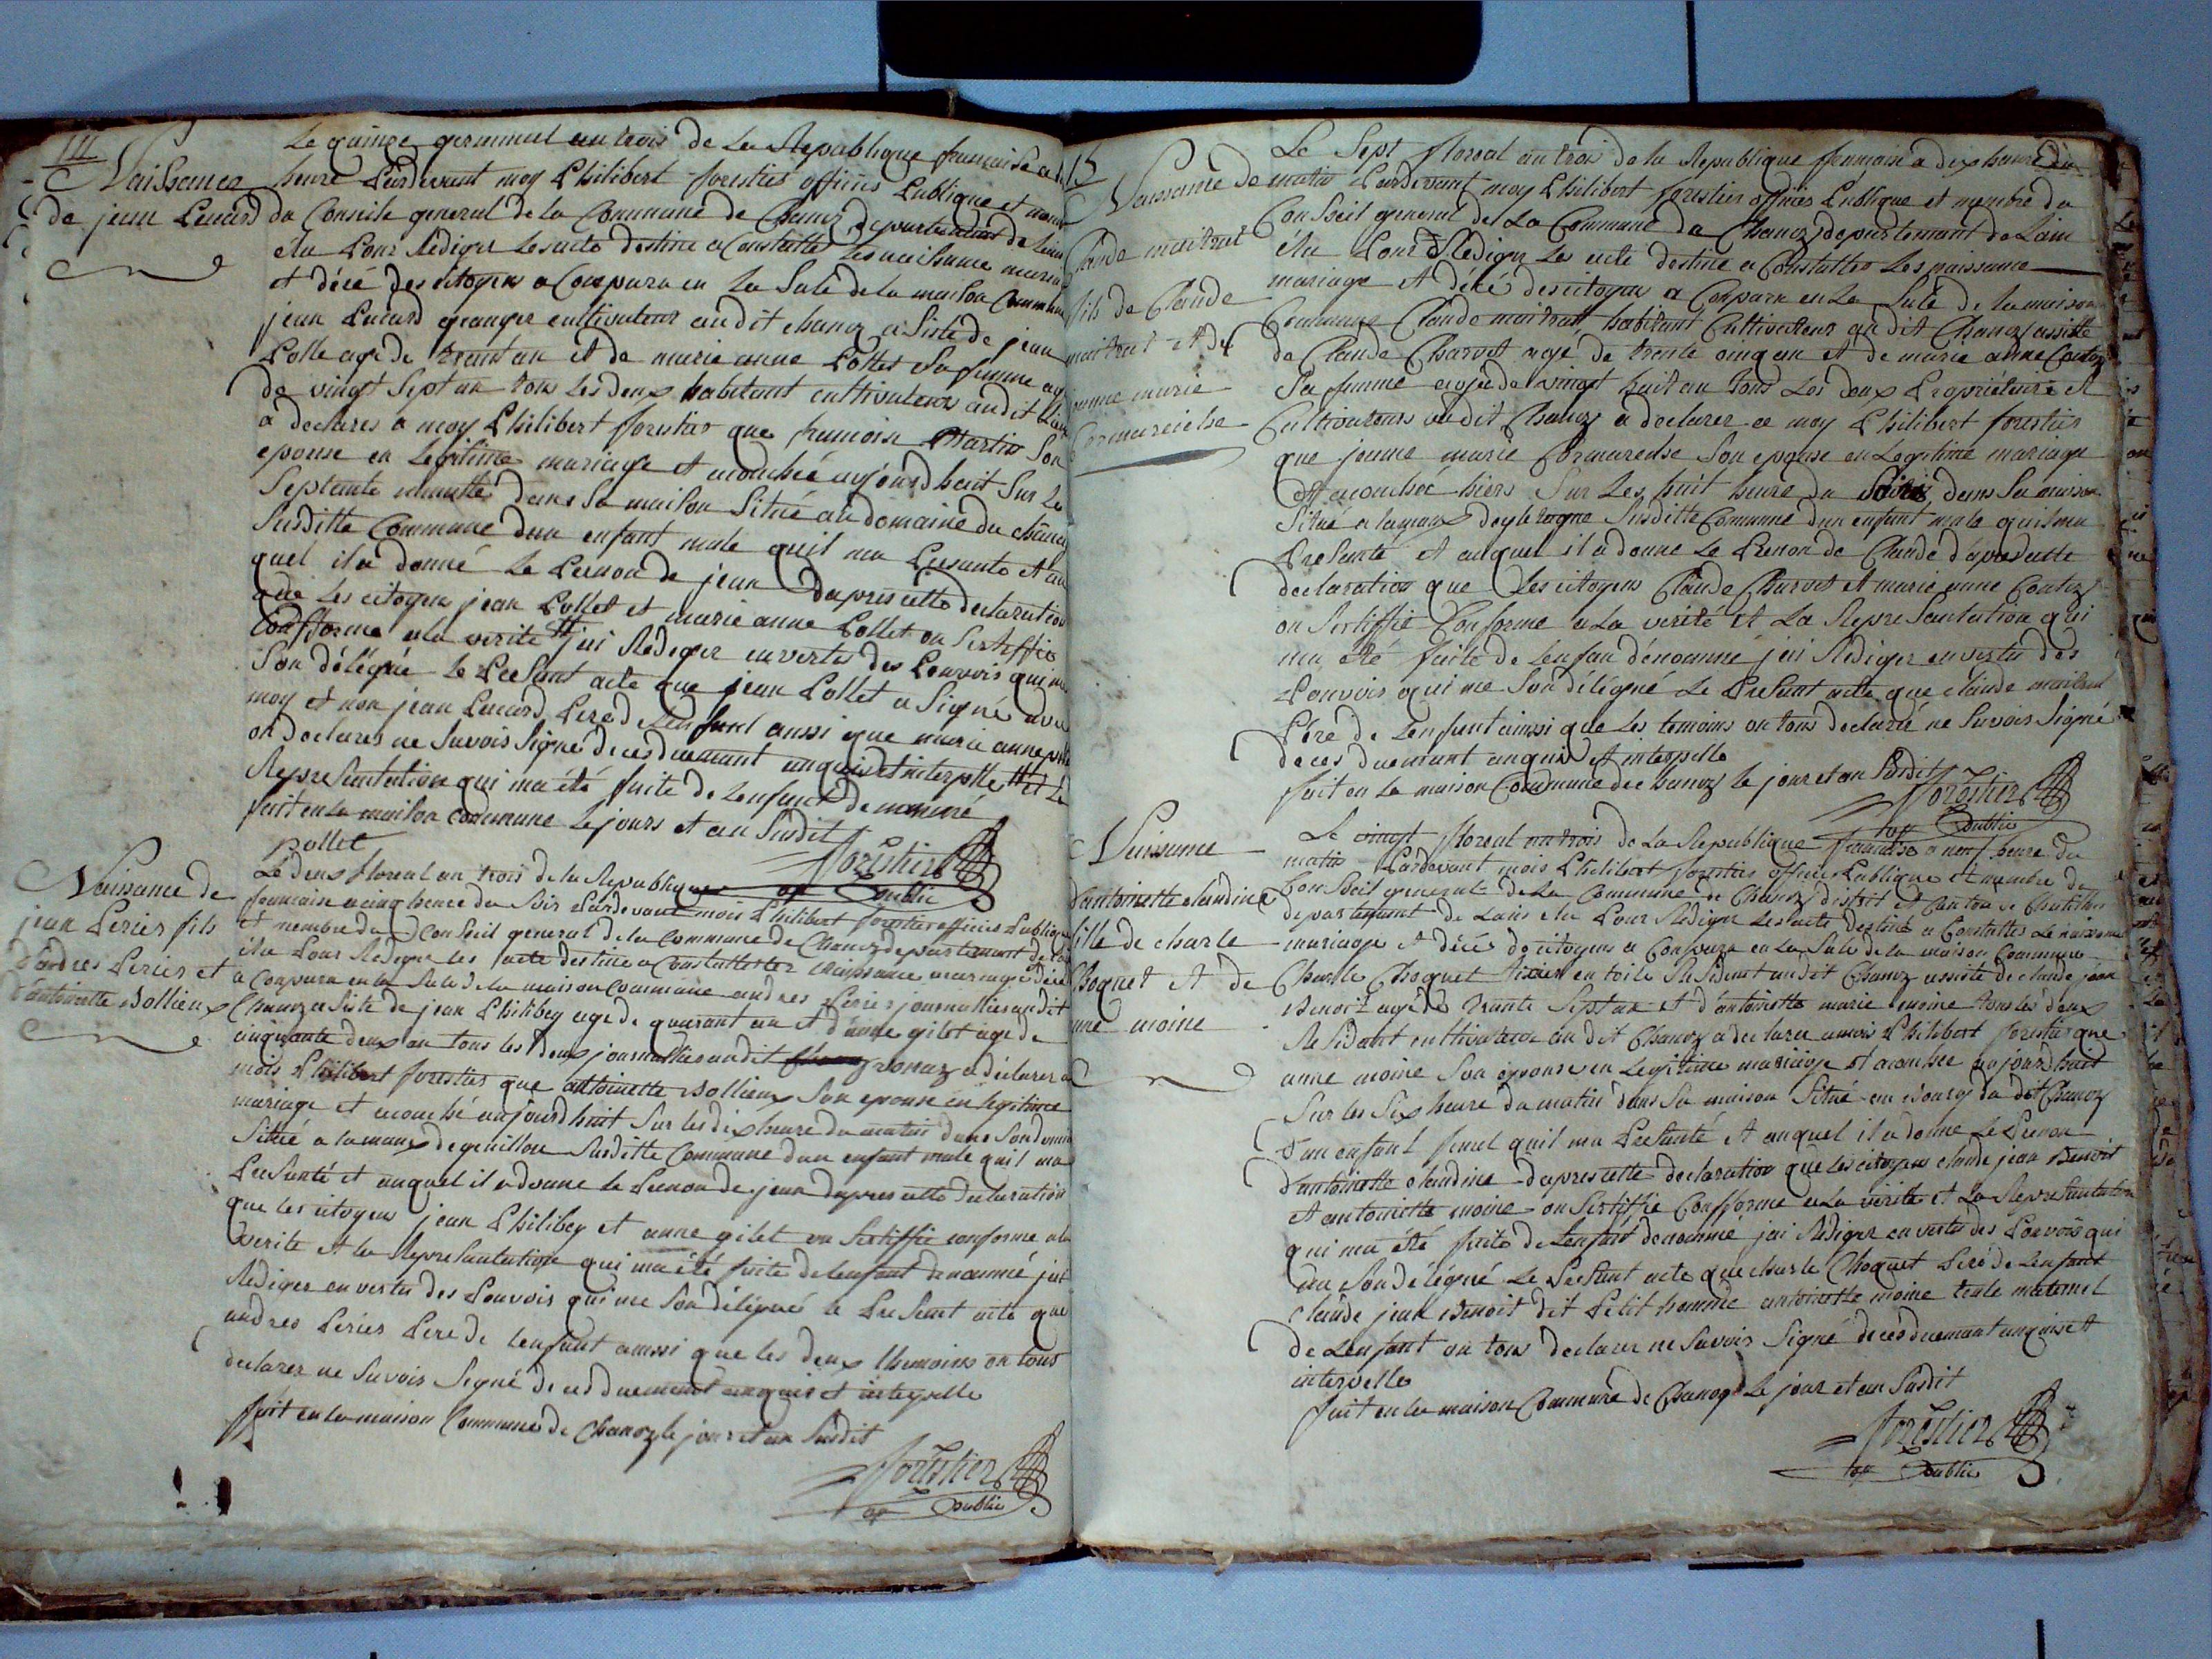 III
Naissance
de jean Lucard
Le quinze germinal an trois de la Republique francaise a
heure Pardevant moy Philibert forestier officies Publique et
du Conseile general de la Commune de Chanoz departement de Lain
élu Pour Rediger Les acte destine a Constatter Les naissance
et décé des citoyens a Conparu en La Sale de la maison Commune
jean Lucard granger cultivateur audit chanoz a Siste de jean
Pollet age de an et de marie anne Pollet Sa femme
de vingt Sept an tous Les deux habitant cultivateurs audit
a declares a moy Philibert forestier que francoise Martin Son
epouse en Legitime mariage et acouchée aujourdhuit Sur Le
dans Sa maison Situé au domaine du
Susditte Commune dun enfant male quil ma Presanté et au
quel il a donné Le Prenon de jean dapres cette declaration
que Les citoyens jean Pollet et marie anne Pollet on Sertiffie
Confforme a la verite jai Rediger en vertes des Pouvois qui
Son délégué Le PreSant acte que jean Pollet a Signé avec
moy et non jean Lucard Pere de Lenfant aussi que marie anne
on declares ne Savois Signé de ces duemant anquis et interpelle et La
RepreSantation qui ma été faite de Lenfant denommé
fait en la maison commune Le jours et an Susdit
pollet
forestier
off public
Naissance de
jean Peries fils
d'andres Peries et
d'antoinette Bollieux
Le deux floreal an trois de la Republique
francaise a cinq heure du Soir Pardevant mois Philibert forestier officies Publique
et membre du ConSeil general de la Commune de Chanoz departement de
élu Pour Rediger les acte destine a Constatter Les naissance mariage et décé
a Conparu en la Sale de la maison Commune andres Peries journallier audit
Chanoz a Siste de jean Philibey age de quarant an et d'anne gilet age de
cinquante deux an tous les deux journallier audit chanoz a declarer a
mois Philibert forestier que antoinette Bollieux Son epouse en legitime
mariage et acouché aujourdhuit Sur les dix heure du matin dans Son
Situé a la maux de Susditte Commune dun enfant male quil ma
PreSanté et auquel il a donne le Prenon de jean dapres cette declaration
que les citoyens jean Philibey et anne gilet on Sertiffie conforme a la
verite et la RepreSantation qui ma été faite de lenfant denommé jai
Rediger en vertu des Pouvois qui me Son délégué le PreSant acte que
andres Peries Pere de lenfant aussi que les deux themoins on tous
declarer ne Savois Signé de ces duement anquis et interpelle
fait en la maison Commune de Chanoz le jour et an Susdit
forestier
off public
Naissance de
Claude maitrat
fils de Claude
maitrat et de
jeanne marie
Cormareche
Le Sept floreal an trois de la Republique francaise a dix heure du
matin Pardevant moy Philibert forestier officies Publique et membre du
ConSeil general de La Commune de Chanoz departement de Lain
élu Pour Rediger Les acte destine a Constatter Les naissance
mariage et décé des citoyens a Conparu en La Sale de la maison
Commune Claude maitrat habitant Cultivateur audit Chanoz assiste
de Claude Charvet age de trente cinq an et de marie anne
Sa femme agée de vingt huit an tous Les deux Propriétaire et
Cultivateurs audit Chanoz a declarer a moy Philibert forestier
que jeanne marie Cormareche Son epouse en Legitime mariage
et acouchée hiers Sur Les huit heure du Soire dans Sa maison
Situé a lamaux Susditte Commune dun enfant male quil ma
PreSanté et auquel il a donne Le Prenon de Claude dapres cette
declaration que Les citoyens Claude Charvet et marie anne
on Sertiffié Conforme a La verité et La RepreSantation qui
ma été faite de Lenfan dénommé jai Rediger en vertu des
Pouvois qui me Son délégué Le PreSant acte que claude maitrat
Pere de Lenfant ainsi que Les temoins on tous declaré ne Savois Signé
de ces duemant anquis et interpelle
fait en La maison Commune de chanoz le jour et an Susdit
forestier
off public
Naissance
d'antoinette claudine
fille de charle
Choquet et de
anne moine
Le vingt floreal an trois de La Republique francaise a neuf heure du
matin Pardevant mois Philibert forestier officies Publique et membre de
ConSeil generale de La Commune de Chanoz district et Canton de Chatillon
departement de Lain élu Pour Rediger Les acte destiné a Constatter Le naissance
mariage et décé de citoyens a Conparu en La Sale de la maison Commune
Charle Choquet tixier en toile ReSidant audit Chanoz assiste de claude jean
Benoit agé de trante Sept an et d'antoinette marie moine tous les deux
ReSidant cultivateur audit Chanoz a declarer a mois Philibert forestier que
anne moine Son épouse en Legitime mariaige et acouchee aujourdhuit
Sur les Six heure du matin dans Sa maison Situé au Bourg du dit Chanoz
d'un enfant femel quil ma PreSanté et auquel il a donne Le Prenon
d'antoinette claudine dapres cette declaration que Les citoyens claude jean Benoit
et antoinette moine on Sertiffié Confforme a La verité et La RepreSantation
qui ma été faite de Lenfant denommé jai Rediger en vertu des Pouvois qui
me Son délégué Le PreSant acte que charle Choquet Pere de Lenfant
Claude jean Benoit dit Petit homme antoinette moine tente maternel
de Lenfant on tous declarer ne Savois Signé de ces duemant anquis et
interpelle
fait en la maison Commune de Chanoz Le jour et an Susdit
forestier
off public